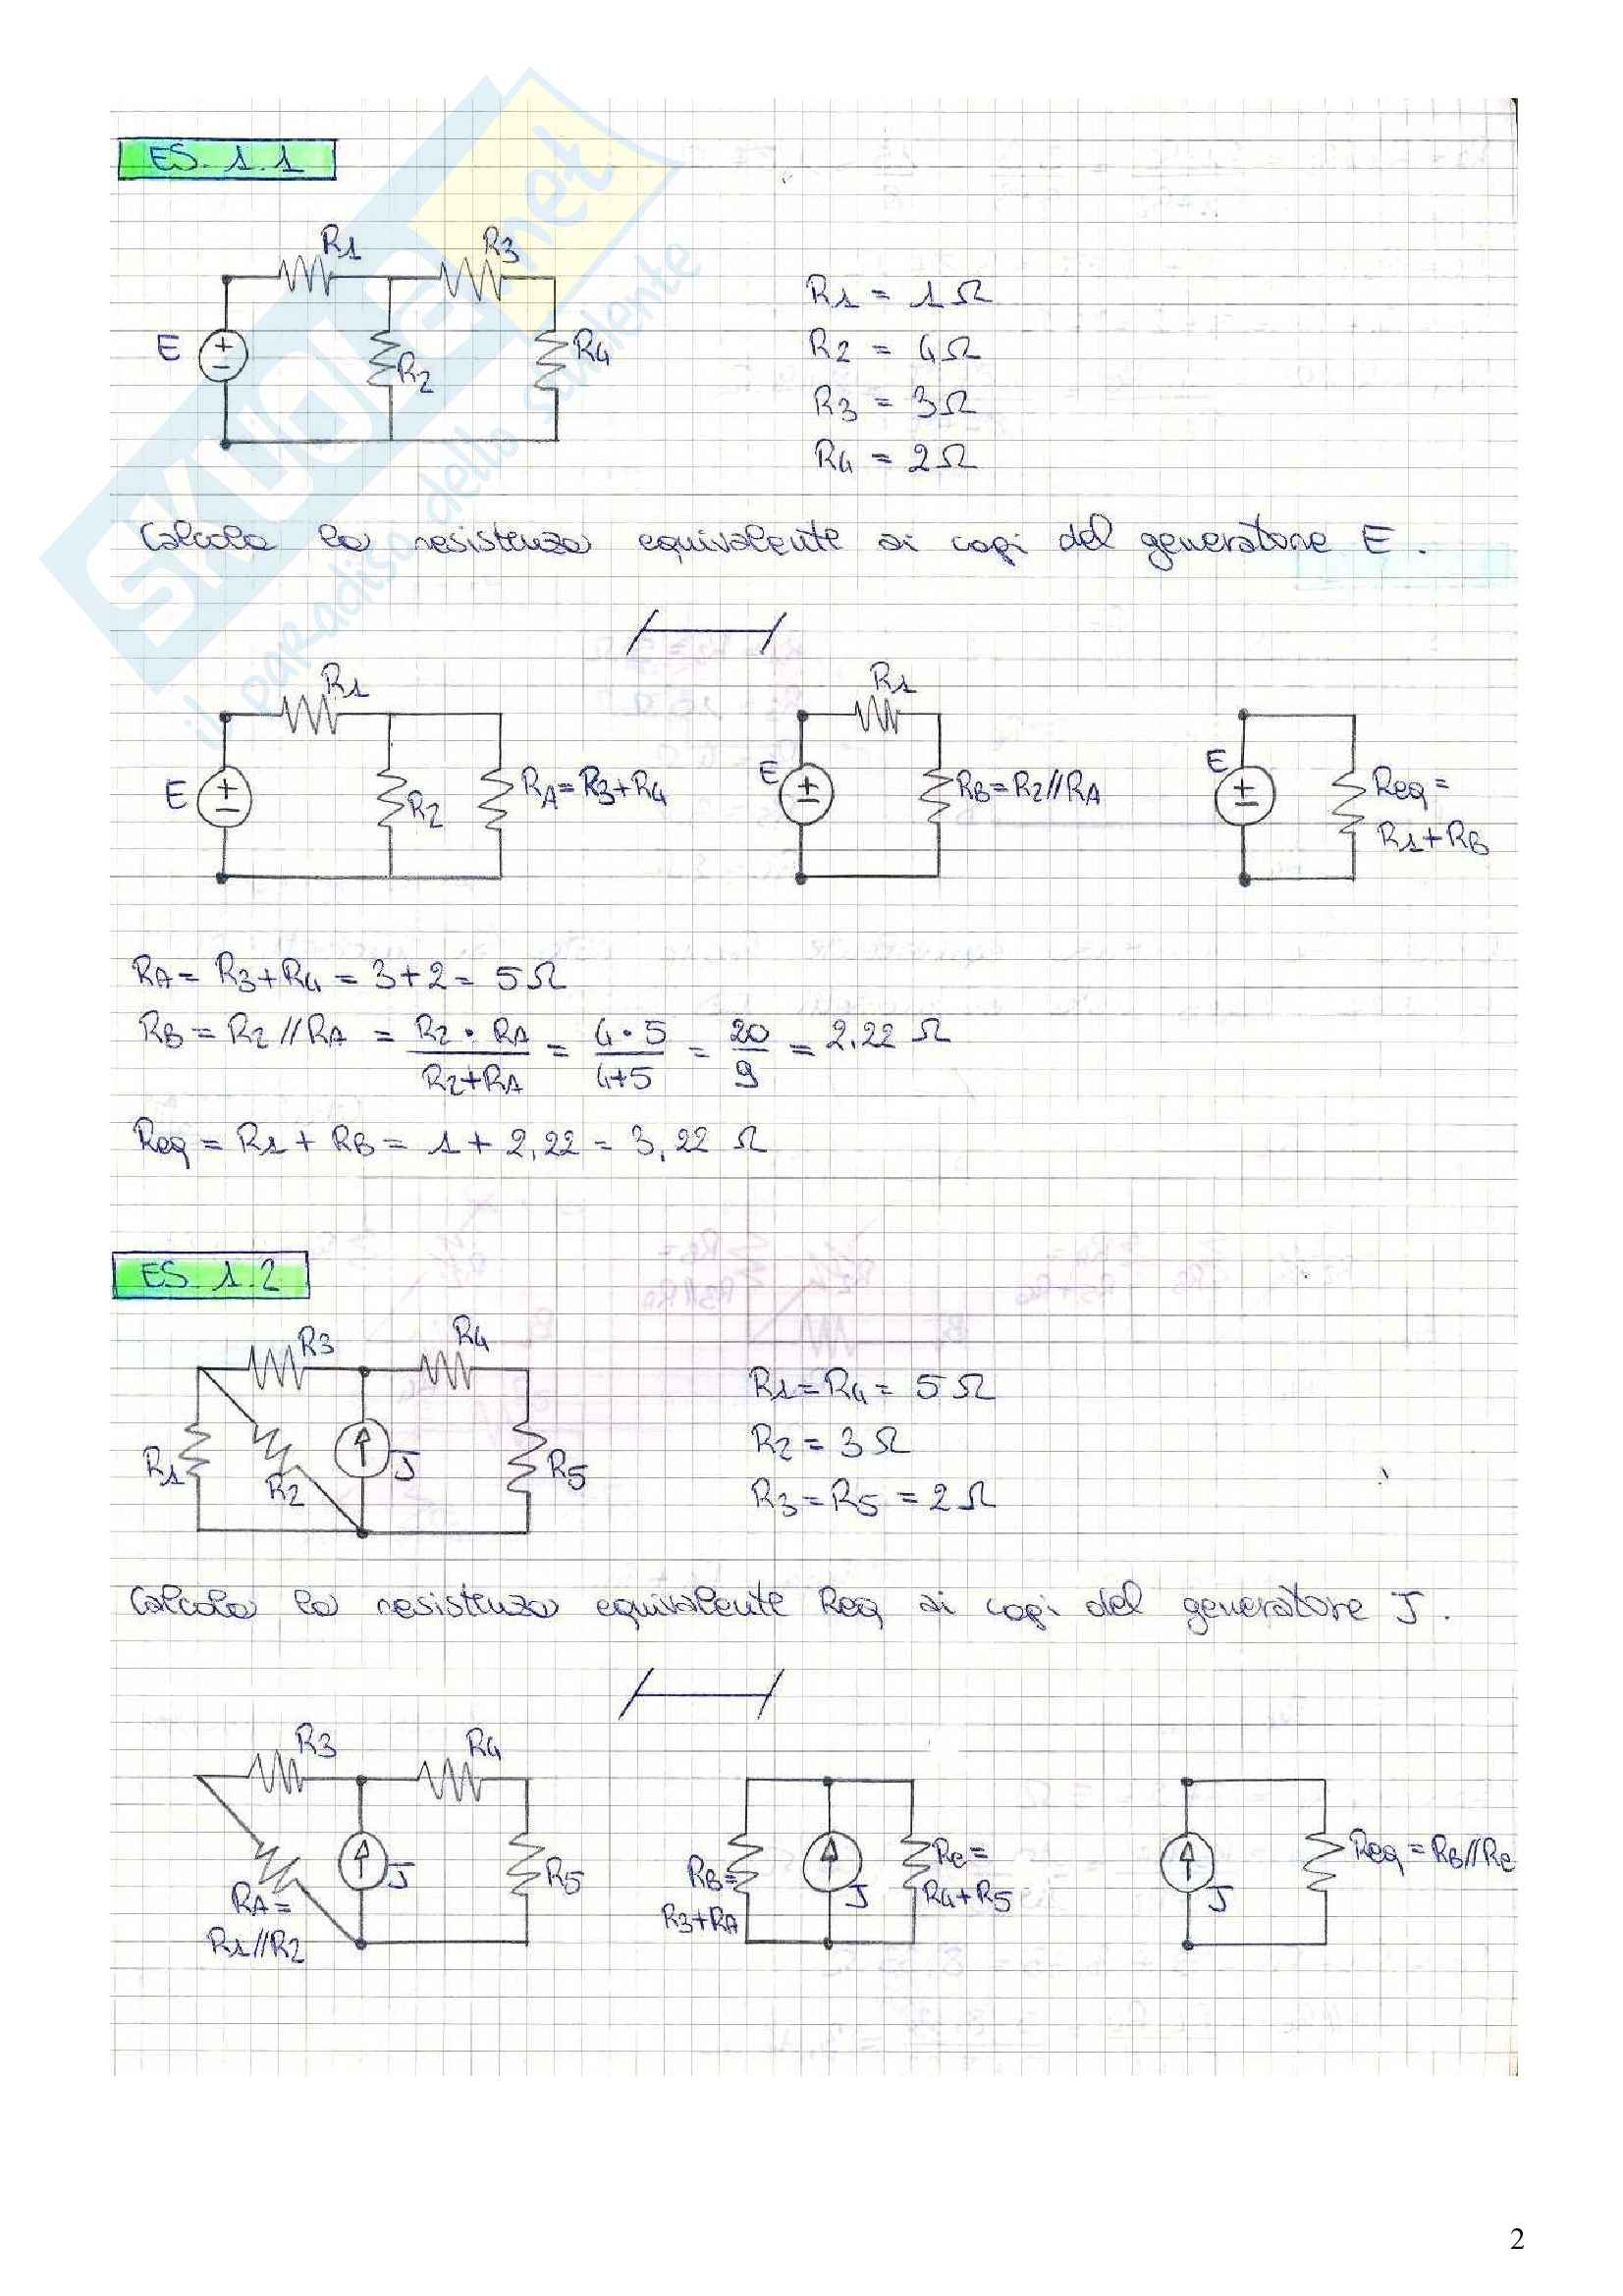 SKUOLA.net
il paradiso dello studente
ES. 1.1
R1
R3
E
R2
R4
R1 = 1Ω
R2 = 4Ω
R3 = 3Ω
R4 = 2Ω
Calcola la resistenza equivalente ai capi del generatore E.
R1
E
R2
RA=R3+R4
R1
E
RB=R2//RA
E
Req=
R1+RB
RA= R3+R4 = 3+2= 5Ω
RB = R2//RA = R2 • RA / R2+RA = 4•5 / 4+5 = 20 / 9 = 2.22 Ω
Req = R1 + RB = 1 + 2,22 = 3,22 Ω
ES. 1.2
R3
R4
R1
R2
J
R5
R1=R4= 5Ω
R2 = 3Ω
R3=R5 = 2Ω
Calcola la resistenza equivalente Req ai capi del generatore J.
R3
R4
RA=
R1//R2
J
R5
RB=
R3+RA
J
Rc=
R4+R5
J
Req=RB//Rc
2